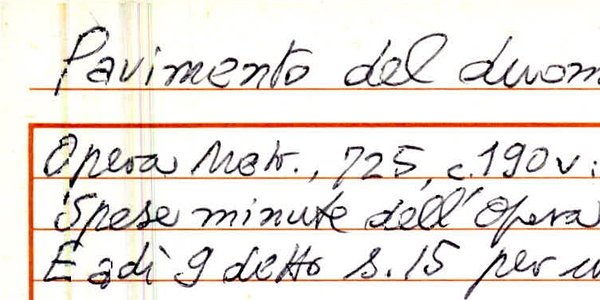 Pavimento del duom
Opera Metr., 725, c.190v:
Spese minute dell'Opera
E adì 9 detto s.15 per u